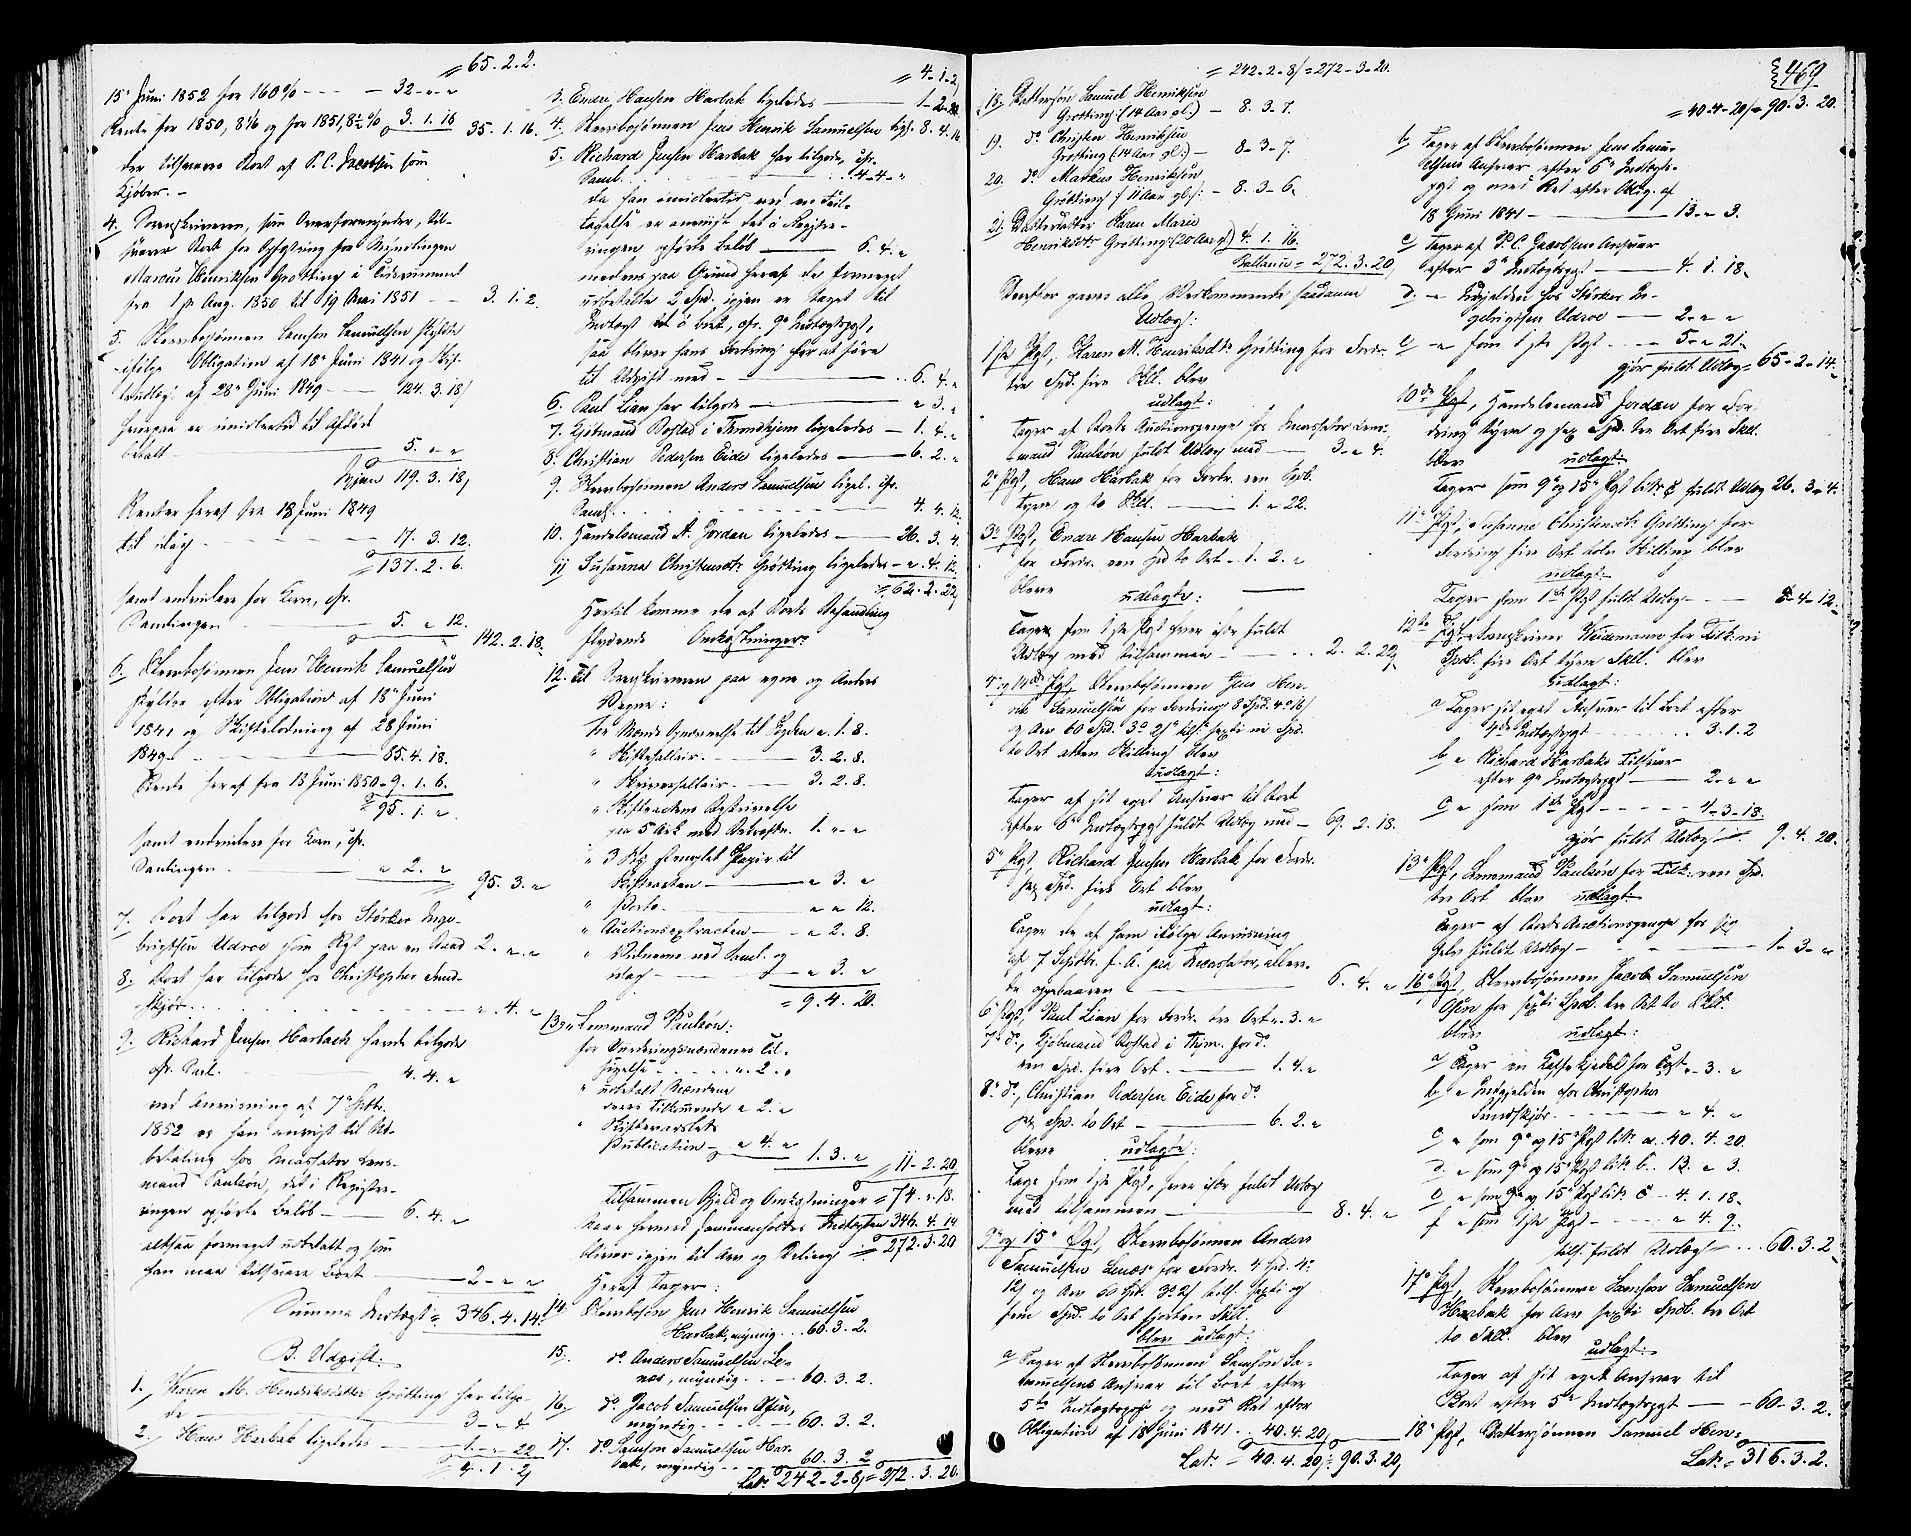 = 65. 2. 2.
15de Juni 1852 for 160% - - - 32 - " - "
Rente for 1850, 8% og for 1851, 8½% 3. 1. 16 35. 1. 16.
der tilsvarer Boet af P. C. Jacobsen som
Kjøber. -
4. Sorenskriveren, som Overformynder, til-
svarer Boet for
Marcus Henriksen Grøtting
fra 1ste Aug. 1850 til 19 Mai 1851 - - 3. 1. 2.
5. Stervbosønnen Samson Samuelsen skylder
ifølge Obligation af 18de Juni 1841 og Skif-
af 28de Juni 1849 - - 124. 3. 18/
hvorpaa er imidlertid til Afdød
betalt - 5. " "
Igjen 119. 3. 18,
Renter heraf fra 18 Juni 1849
til idag - 17. 3. 12.
= 137. 2. 6.
samt endvidere for Korn, cfr.
Samlingen - 5. " 12.
142. 2. 18.
6. Stervbosønnen Jens Henrik Samuelsen
skylder efter Obligation af 18de Juni
1841 og Skiftelodning af 28 Juni
1849 - 85. 4. 18.
Rente heraf fra 18 Juni 1850 - 9. 1. 6.
= 95. 1. "
samt endvidere for Korn, cfr.
Samlingen - " 2. "
95. 3. "
7. Boet har tilgode hos Størker Inge-
brigtsen Udroe som Rest paa en 2. " "
8. Boet har tilgode hos Christopher
" 4. "
9. Richard Jensen Harbak havde tilgode
cfr. Saml. - 4. 4. "
ved Anvisning af 7de Septbr.
1852 er han anvist til Ud-
betaling hos Incassator Lens-
mand Paulsøn, det i Registre-
ringen opførte Beløb - 6. 4. "
altsaa formeget udbetalt og som
han maa tilsvare Boet - 2 - " "
Summa Indtægt = 346. 4. 14.
B. Udgift:
1. Karen M. Henriksdatter Grøtting har tilgo-
de - 3 - " 4.
2. Hans Harbak ligeledes - 1. " 22.
= 4. 1. 2,
= 4. 1. 2,
3. Endre Hansen Harbak ligeledes - 1. 2. "
4. Stervbosønnen Jens Henrik Samuelsen ligel. 8. 4. 16
5. Richard Jensen Harbak har tilgode, cfr.
Saml. - 4. 4. "
da han imidlertid ved en
tagelse er anvist det i Registre-
ringen opførte Beløb - 6. 4. "
medens paa Grund heraf de formeget
udbetalte 2 Spd. igjen er taget til
Indtægt i boet, cfr. 9de Indtægtspost,
saa bliver hans Fordring her at føre
til Udgift med - 6. 4. "
6. Paul Lian har tilgode - " 3. "
7. Kjøbmand Rostad i Trondhjem ligeledes - 1. 4. "
8. Christian Pedersen Eide ligeledes - 6. 2. "
9. Stervbosønnen Anders Samuelsen ligel. cfr.
Saml. - 4. 4. 12.
10. Handelsmand A. Jordan ligeledes - 26. 3. 4.
11. Susanna Christensdtr. Grøtting ligeledes - " 4. 12
= 62. 2. 22,
Hertil komme de af Boets Behandling
flydende Omkostninger:
12. Til Sorenskriveren paa egne og Andres
Vegne:
" 1. 8.
" Skiftesallair - 3. 2. 8.
" Skriversallair - 3. 2. 8.
" Skifteactens Beskrivelse
paa 5 Ark med - 1. " "
" 3 stemplet Papir til
Skifteacten - " 3. "
" Porto - " " 12.
" Auctionsextracten - " 2. 8.
" Vidnerne ved Saml. og
idag - " 3. "
= 9. 4. 20.
13. Lensmand Paulsøn:
for Vurderingsmændenes til-
sigelse - " 2. "
" udbetalt Mændene
deres Tilkommende " 2. "
" Skiftevarslets
Publication - " 4. " 1. 3. "
= 11. 2. 20,
tilsammen Gjeld og Omkostninger = 74. " 18.
naar hermed sammenholdes Indtægten 346. 4. 14
bliver igjen til Arv og Deling = 272. 3. 20
Heraf tager:
14. Stervbosøn Jens Henrik Samuelsen
Harbak, myndig - 60. 3. 2.
15. do. Anders Samuelsen Le-
næs, myndig - 60. 3. 2.
16. do. Jacob Samuelsen
myndig - 60. 3. 2.
17. do. Samson Samuelsen Har-
bak, myndig - 60. 3. 2
Lat. 242. 2. 8/ = 272. 3. 20.
= 242. 2. 8/ = 272. 3. 20.
469
18. Dattersøn Samuel Henriksen
Grøtting (14 Aar gl.) - 8. 3. 7.
19. do. Christen Henriksen
Grøtting (14 Aar gl.) - 8. 3. 7.
20. do. Markus Henriksen
Grøtting (11 Aar gl.) - 8. 3. 6.
21. Datterdatter Karen Marie
Henriksdtr. Grøtting (20 Aar gl.) 4. 1. 16.
Ballance = 272. 3. 20,
Derefter gaves alle Vedkommende saadanne
Udlæg:
1ste Post, Karen M. Henriksdtr. Grøtting for Fordr.
tre Spd. fire Skl. blev
udlagt:
Tager af Boets Auctionspenge hos Incassator Lens-
mand Paulsøn fuldt Udlæg med - 3. " 4.
2de Post, Hans Harbak for Fordr. een Spd.
tyve og to Skl. - 1. " 22.
3de Post, Endre Hansen Harbak
for Fordr. een Spd. to Ort - 1. 2. "
bleve udlagte:
Tager som 1ste Post hver især fuldt
Udlæg med tilsammen - 2. 2. 22,
4de og 14de Post, Stervbosønnen Jens Hen-
rik Samuelsen for Fordring 8 Spd. 4 o. 16/
og Arv 60 Spd. 3 o. 2/ tils. sexti ni Spd.
to Ort atten Skilling blev
udlagt:
Tager af sit eget Ansvar til Boet
efter 6te Indtægtspost fuldt Udlæg med - 69. 2. 18.
5te Post, Richard Jensen Harbak for Fordr.
sex Spd. fire Ort blev
udlagt:
Tager de af ham ifølge Anvisning
af 7 Septbr. f. A. paa Incassator, aller-
de oppebaarne - 6. 4. "
6te Post, Paul Lian for Fordr. tre Ort " 3. "
7de do., Kjøbmand Rostad i Thjm. for do.
een Spd. fire Ort - 1. 4. "
8de do., Christian Pedersen Eide for do.
sex Spd. to Ort - 6. 2. "
bleve udlagte:
Tage som 1ste Post, hver især fuldt Udlæg
med tilsammen - 8. 4. "
9de og 15de Post, Stervbosønnen Anders
Samuelsen Lenæs for Fordr. 4 Spd. 4 o.
12/ og Arv 60 Spd. 3 o. 2/ tils. sexti og
fem Spd. to Ort fjorten Skl.
blev udlagt:
a Tager af Stervbosønnen Samson Sa-
muelsens Ansvar til Boet efter
5te Indtægtspost og med Ret efter
Obligation af 18 Juni 1841 - 40. 4. 20,
Lat. = 40. 4. 20/ = 90. 3. 20,
= 40. 4. 20/ = 90. 3. 20.
b Tager af Stervbosønnen Jens Samu-
elsens Ansvar efter 6te Indtægts-
post og med Ret efter Oblig. af
18 Juni 1841 - 13. " 3.
c Tager af P. C. Jacobsen Ansvar
efter 3de Indtægtspost - 4. 1. 18.
d. " Indgjelden hos Størker In-
gebrigtsen Udroe - 2. " "
e " som 1ste Post - 5. " 21.
gjør fuldt Udlæg = 65. 2. 14.
10de Post, Handelsmand Jordan for For-
dring tyve og sex Spd. tre Ort fire Skl.
blev udlagt:
Tager som 9de og 15de Post litr. fuldt Udlæg 26. 3. 4.
11te Post, Susanna Christensdtr. Grøtting for
Fordring fire Ort tolv Skilling blev
udlagt:
Tager som 1ste Post fuldt Udlæg - " 4. 12.
12te Post, Sorenskriver Weidemann for Tilk. ni
Spd. fire Ort tyve Skl. blev
udlagt:
a Tager sit eget Ansvar til Boet efter
4de Indtægtspost - 3. 1. 2
b " Richard Harbaks Tilsvar
efter 9de Indtægtspost - 2. " "
c " som 1ste Post - 4. 3. 18.
gjør fuldt Udlæg - 9. 4. 20.
13de Post, Lensmand Paulsøn for Tilk. een Spd.
tre Ort blev udlagt:
Tager af Boets Auctionspenge hos sig
selv fuldt Udlæg - 1. 3. "
16de Post, Stervbosønnen Jacob Samuelsen
for sexti Spd. tre Ort to Skl.
blev udlagt:
a Tager en for Taxt " 3. "
b " Indgjelden hos Christopher
- " 4. "
c " som 9de og 15de Post litr. a. 40. 4. 20.
d. " som 9de og 15de Post litr. b. 13. " 3.
e " som 9de og 15de Post litr. c - 4. 1. 18,
f " som 1ste Post - " 4. 9.
tils. fuldt Udlæg - 60. 3. 2,
17de Post, Stervbosønnen Samson Samuelsen
Harbak for Arv sexti Spd. tre Ort
to Skl. blev
udlagt:
Tager af sit eget Ansvar til
Boet efter 5te Indtægtspost - 60. 3. 2.
18de Post, Dattersønnen Samuel Hen-
Lat. = 316. 3. 2.